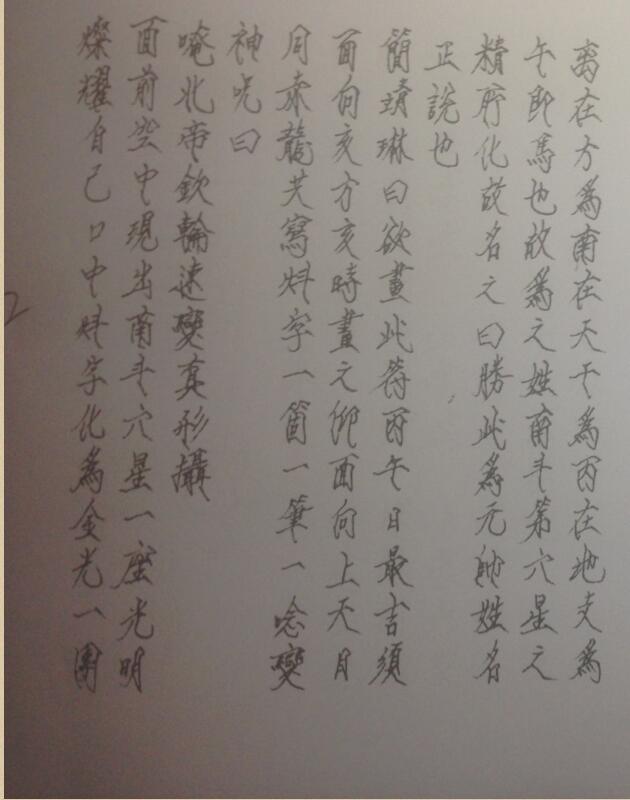 离在方為南在天干為丙在地支為
午即馬也故為之姓南斗第六星之
精所化故名之曰勝此為元帥姓名
正說也
簡靖琳曰欲畫此符丙午日最吉須
面向亥方亥時畫之仰面向上天月
同赤龍芡寫炓字一箇一筆一唸變
神咒曰
唵北帝欽輪速變真形攝
面前空中現出南斗六星一座光明
燦耀自己口中炓字化為金光一團
2